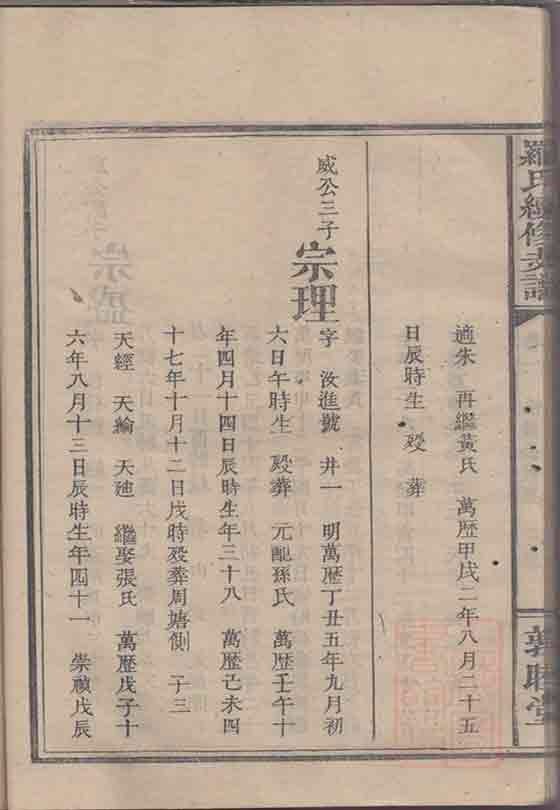 羅氏續修支譜
敦睦堂
適朱 再繼黃氏 萬歷甲戌二年八月二十五
日辰時生 歿 葬
威公三子
宗理
字 汝進號 井一 明萬歷丁丑五年九月初
六日午時生 歿葬 元配孫氏 萬歷壬午十
年四月十四日辰時生年三十八 萬歷己未四
十七年十月十二日戌時歿葬周塘側 子三
天經 天綸 天 繼娶張氏 萬歷戊子十
六年八月十三日辰時生年四十一 崇禎戊辰